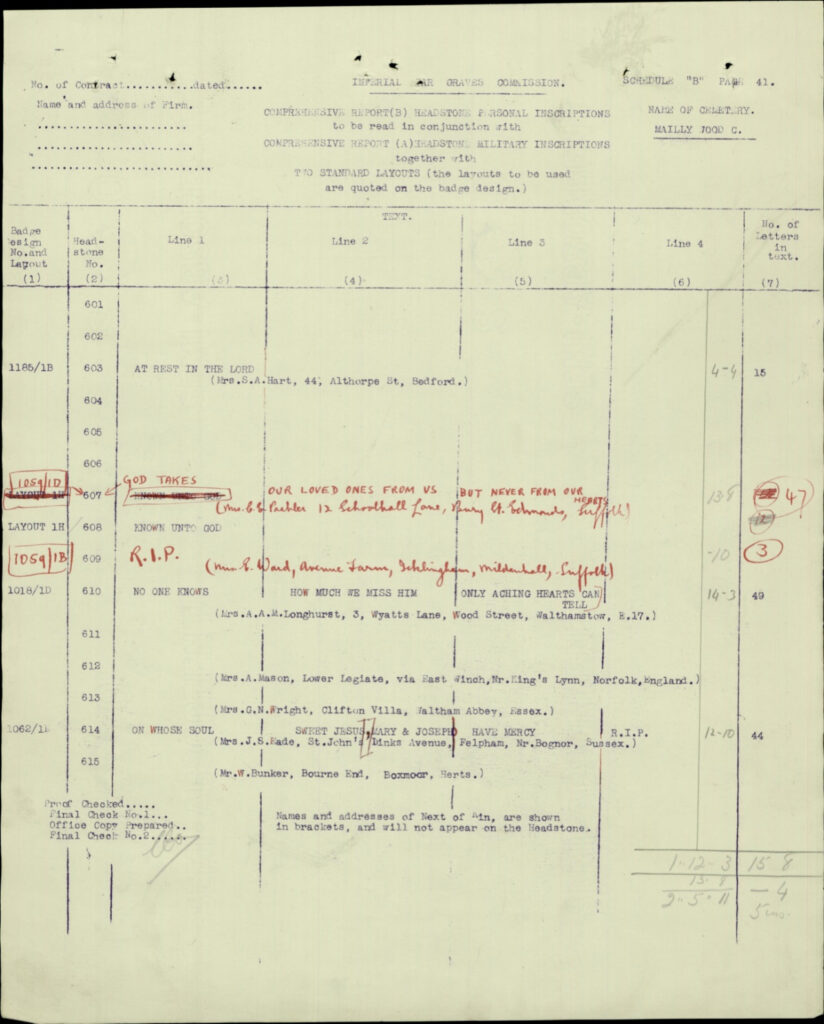 No. of Contract...........dated......
IMPERIAL WAR GRAVES COMMISSION.
SCHEDULE "B" PAGE 41.
Name and address of Firm.
COMPREHENSIVE REPORT(B) HEADSTONE PERSONAL INSCRIPTIONS
to be read in conjunction with
NAME OF CEMETERY.
MAILLY WOOD C.
COMPREHENSIVE REPORT (A)HEADSTONE MILITARY INSCRIPTIONS
together with
TWO STANDARD LAYOUTS (the layouts to be used
are quoted on the badge design.)
TEXT.
Badge Design No.and Layout (1)
Head-stone No. (2)
Line 1 (3)
Line 2 (4)
Line 3 (5)
Line 4 (6)
No. of Letters in text. (7)
601
602
1185/1B 603 AT REST IN THE LORD 4-4 15
(Mrs.S.A.Hart, 44, Althorpe St, Bedford.)
604
605
606
1059/1D GOD TAKES OUR LOVED ONES FROM US BUT NEVER FROM OUR HEARTS
LAYOUT 1H 607 KNOWN UNTO GOD 13-8 47
(Mrs. E. Pachler 12 Schoolhall Lane, Bury St. Edmunds, Suffolk)
LAYOUT 1H 608 KNOWN UNTO GOD 12
1059/1B 609 R.I.P. -10 3
(Mrs. E. Ward, Avenue Farm, Icklingham, Mildenhall, Suffolk)
1018/1D 610 NO ONE KNOWS HOW MUCH WE MISS HIM ONLY ACHING HEARTS CAN TELL 14-3 49
(Mrs.A.A.M.Longhurst, 3, Wyatts Lane, Wood Street, Walthamstow, E.17.)
611
612
(Mrs.A.Mason, Lower Legiate, via East Winch,Nr.King's Lynn, Norfolk,England.)
613
(Mrs.G.N.Wright, Clifton Villa, Waltham Abbey, Essex.)
1062/1E 614 ON WHOSE SOUL SWEET JESUS, MARY & JOSEPH HAVE MERCY R.I.P. 12-10 44
(Mrs.J.S.Eade, St.John's Dinks Avenue, Felpham, Nr.Bognor, Sussex.)
615
(Mr.W.Bunker, Bourne End, Boxmoor, Herts.)
Proof Checked.....
Final Check No.1...
Office Copy Prepared..
Final Check No.2......
Names and addresses of Next of Kin, are shown
in brackets, and will not appear on the Headstone.
1-12-3 15 8
13-8 - 4
2-5-11